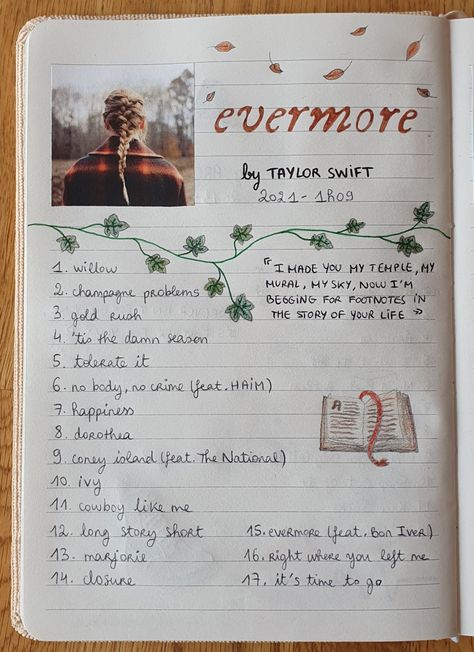 evermore
by TAYLOR SWIFT
2021 - 1h09
1. willow
2. champagne problems
3. gold rush
4. 'tis the damn season
5. tolerate it
6. no body, no crime (feat. HAIM)
7. happiness
8. dorothea
9. coney island (feat. The National)
10. ivy
11. cowboy like me
12. long story short
13. marjorie
14. closure
"I MADE YOU MY TEMPLE, MY
MURAL, MY SKY, NOW I'M
BEGGING FOR FOOTNOTES IN
THE STORY OF YOUR LIFE"
A
15. evermore (feat. Bon Iver)
16. right where you left me
17. it's time to go